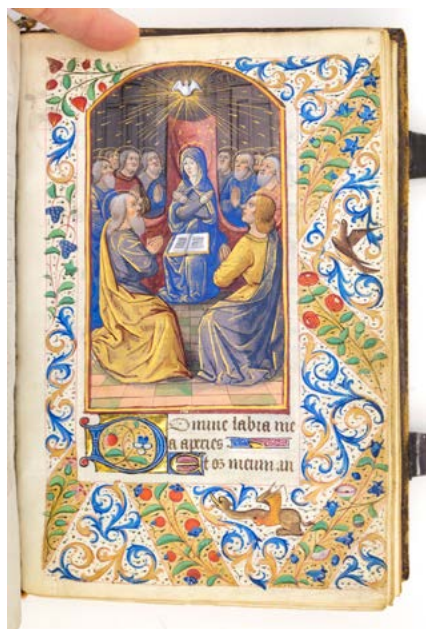 Domine labia me
a aperies
Et os meum an